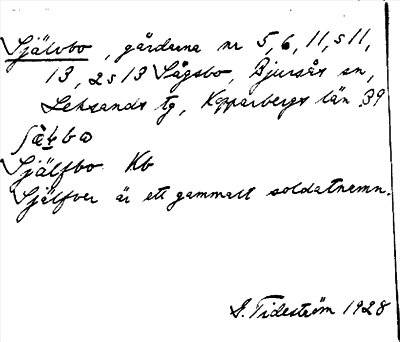 Självbo, gårdarna nr 5, 6, 11, s 11,
13, 2 s 13 Sågsbo, Bjursås sn,
Leksands tg, Kopparbergs län. 39
Själfbo Kb
Själfver är ett gammalt soldatnamn.
G. Tideström 1928